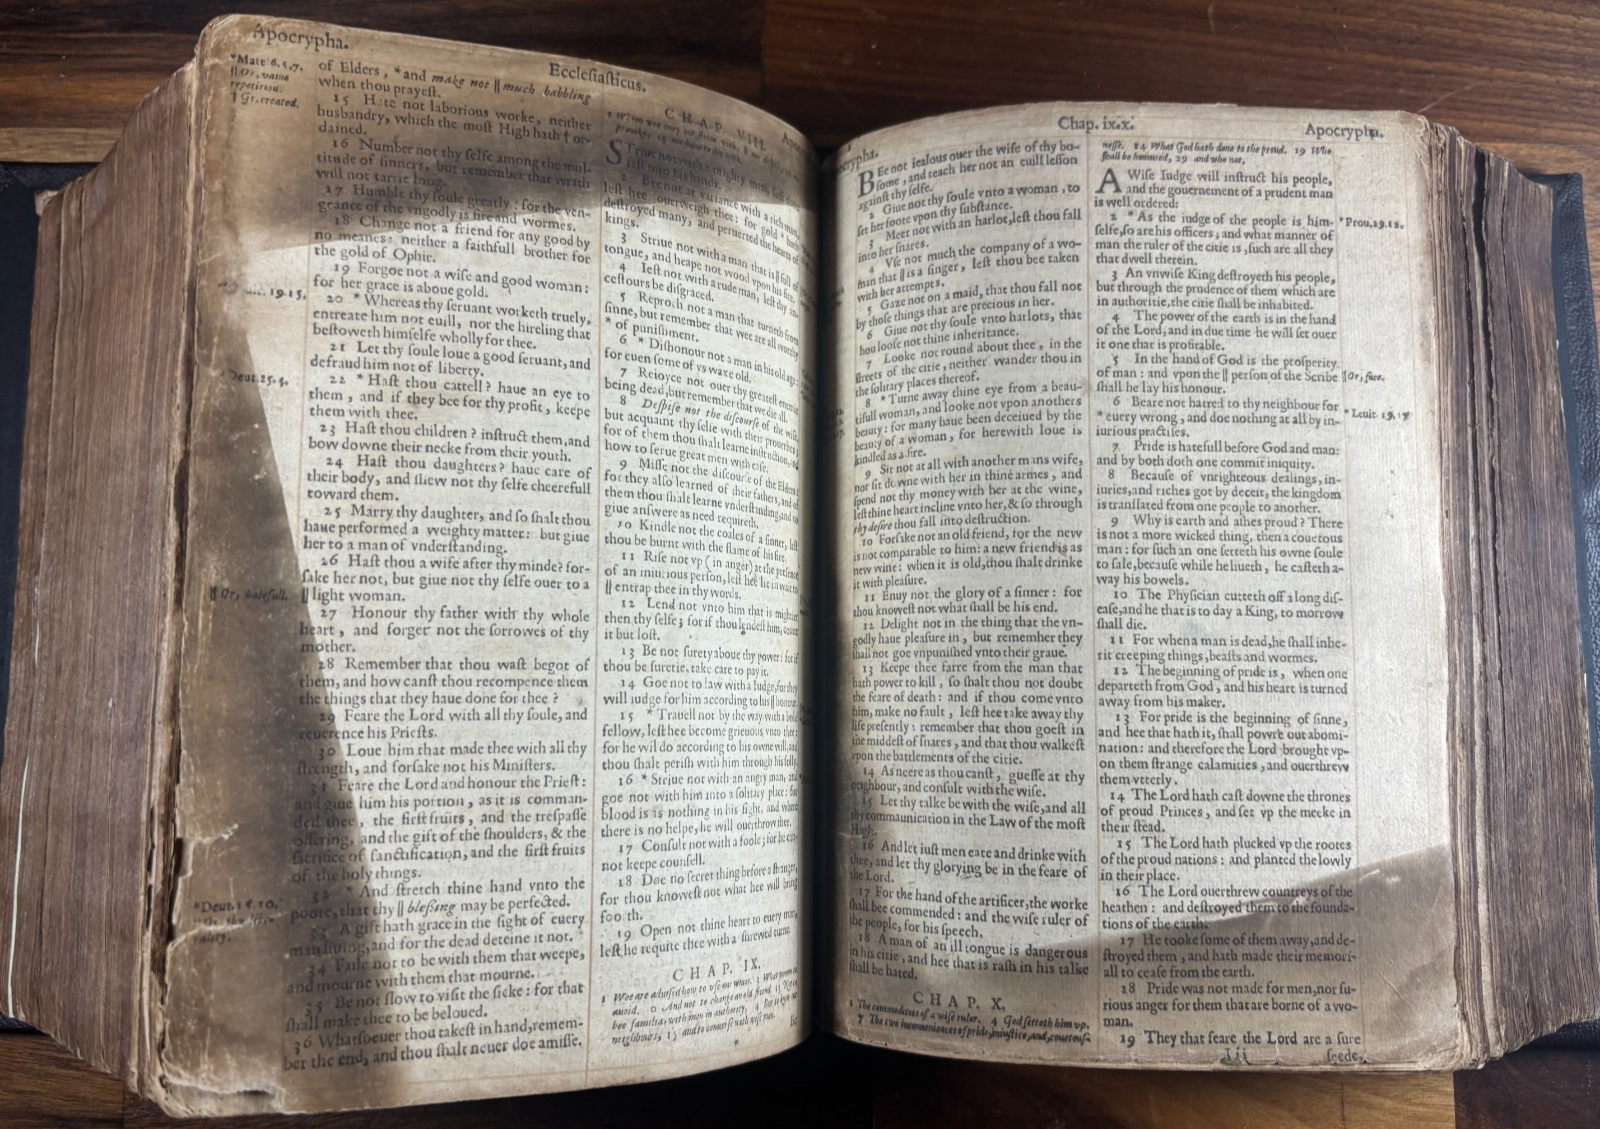 Apocrypha.
Ecclesiasticus.
*Matt. 6. 5, 7.
|| Or, vaine
repetition.
† Gr. created.
of Elders, *and make not || much babbling
when thou prayest.
15 Hate not laborious worke, neither
husbandry, which the most High hath † or-
dained.
16 Number not thy selfe among the mul-
titude of sinners, but remember that wrath
will not tarrie long.
17 Humble thy soule greatly: for the ven-
geance of the vngodly is fire and wormes.
18 Change not a friend for any good by
no meanes: neither a faithfull brother for
the gold of Ophir.
19 Forgoe not a wise and good woman:
for her grace is aboue gold.
19.15.
20 * Whereas thy seruant worketh truely,
entreate him not euill, nor the hireling that
bestoweth himselfe wholly for thee.
21 Let thy soule loue a good seruant, and
defraud him not of liberty.
*Deut. 25. 4.
22 * Hast thou cattell? haue an eye to
them, and if they bee for thy profit, keepe
them with thee.
23 Hast thou children? instruct them, and
bow downe their necke from their youth.
24 Hast thou daughters? haue care of
their body, and shew not thy selfe cheerefull
toward them.
25 Marry thy daughter, and so shalt thou
haue performed a weighty matter: but giue
her to a man of vnderstanding.
26 Hast thou a wife after thy minde? for-
sake her not, but giue not thy selfe ouer to a
|| light woman.
|| Or, hatefull.
27 Honour thy father with thy whole
heart, and forget not the sorrowes of thy
mother.
28 Remember that thou wast begot of
them, and how canst thou recompence them
the things that they haue done for thee?
29 Feare the Lord with all thy soule, and
reuerence his Priests.
30 Loue him that made thee with all thy
strength, and forsake not his Ministers.
31 Feare the Lord and honour the Priest:
and giue him his portion, as it is comman-
ded thee, the first fruits, and the trespasse
offering, and the gift of the shoulders, & the
sacrifice of sanctification, and the first fruits
of the holy things.
32 * And stretch thine hand vnto the
poore, that thy || blessing may be perfected.
*Deut. 15. 10.
33 A gift hath grace in the sight of euery
man liuing, and for the dead deteine it not.
34 Faile not to be with them that weepe,
and mourne with them that mourne.
35 Be not slow to visit the sicke: for that
shall make thee to be beloued.
36 Whatsoeuer thou takest in hand, remem-
ber the end, and thou shalt neuer doe amisse.
CHAP. VIII.
STriue not with a mighty man, lest thou
fall into his hands.
2 Bee not at variance with a rich man,
lest hee ouerweigh thee: for gold * hath
destroyed many, and peruerted the hearts of
kings.
3 Striue not with a man that is || full of
tongue, and heape not wood vpon his fire.
4 Iest not with a rude man, lest thy an-
cestours be disgraced.
5 Reproch not a man that turneth from
sinne, but remember that wee are all worthy
* of punishment.
6 * Dishonour not a man in his old age:
for euen some of vs waxe old.
7 Reioyce not ouer thy greatest enemie
being dead, but remember that we die all.
8 Despise not the discourse of the wise,
but acquaint thy selfe with their prouerbes;
for of them thou shalt learne instruction, and
how to serue great men with ease.
9 Misse not the discourse of the Elders:
for they also learned of their fathers, and of
them thou shalt learne vnderstanding, and to
giue answere as need requireth.
10 Kindle not the coales of a sinner, lest
thou be burnt with the flame of his fire.
11 Rise not vp (in anger) at the presence
of an iniurious person, lest hee lie in wait to
|| entrap thee in thy words.
12 Lend not vnto him that is mightier
then thy selfe; for if thou lendest him, count
it but lost.
13 Be not surety aboue thy power: for if
thou be suretie, take care to pay it.
14 Goe not to law with a Iudge, for they
will iudge for him according to his || honour.
15 * Trauell not by the way with a bold
fellow, lest hee become grieuous vnto thee:
for he wil do according to his owne will, and
thou shalt perish with him through his folly.
16 * Striue not with an angry man, and
goe not with him into a solitary place: for
blood is as nothing in his sight, and where
there is no helpe, he will ouerthrow thee.
17 Consult not with a foole; for he can-
not keepe counsell.
18 Doe no secret thing before a stranger,
for thou knowest not what hee will bring
foorth.
19 Open not thine heart to euery man,
lest he requite thee with a shrewd turne.
CHAP. IX.
1 Wee are aduised how to vse our wiues. 3 What women to
auoid. 10 And not to change an old friend. 13 Not to
bee familiar with men in authority, 14 But to know our
neighbours, 15 and to conuerse with wise men.
Chap. ix. x.
Apocrypha.
BEe not iealous ouer the wife of thy bo-
some, and teach her not an euill lesson
against thy selfe.
2 Giue not thy soule vnto a woman, to
set her foote vpon thy substance.
3 Meet not with an harlot, lest thou fall
into her snares.
4 Vse not much the company of a wo-
man that || is a singer, lest thou bee taken
with her attempts.
5 Gaze not on a maid, that thou fall not
by those things that are precious in her.
6 Giue not thy soule vnto harlots, that
thou loose not thine inheritance.
7 Looke not round about thee, in the
streets of the citie, neither wander thou in
the solitary places thereof.
8 * Turne away thine eye from a beau-
tifull woman, and looke not vpon anothers
beauty: for many haue been deceiued by the
beauty of a woman, for herewith loue is
kindled as a fire.
9 Sit not at all with another mans wife,
nor sit downe with her in thine armes, and
spend not thy money with her at the wine,
lest thine heart incline vnto her, & so through
thy desire thou fall into destruction.
10 Forsake not an old friend, for the new
is not comparable to him: a new friend is as
new wine: when it is old, thou shalt drinke
it with pleasure.
11 Enuy not the glory of a sinner: for
thou knowest not what shall be his end.
12 Delight not in the thing that the vn-
godly haue pleasure in, but remember they
shall not goe vnpunished vnto their graue.
13 Keepe thee farre from the man that
hath power to kill, so shalt thou not doubt
the feare of death: and if thou come vnto
him, make no fault, lest hee take away thy
life presently: remember that thou goest in
the middest of snares, and that thou walkest
vpon the battlements of the citie.
14 As neere as thou canst, guesse at thy
neighbour, and consult with the wise.
15 Let thy talke be with the wise, and all
thy communication in the Law of the most
High.
16 And let iust men eate and drinke with
thee, and let thy glorying be in the feare of
the Lord.
17 For the hand of the artificer, the worke
shall bee commended: and the wise ruler of
the people, for his speech.
18 A man of an ill tongue is dangerous
in his citie, and hee that is rash in his talke
shall be hated.
CHAP. X.
1 The commodities of a wise ruler. 4 God setteth him vp.
7 The two inconueniences of pride, iniustice, and couetous-
nesse. 14 What God hath done to the proud. 19 Who
shall be honoured, 29 and who not.
A Wise Iudge will instruct his people,
and the gouernement of a prudent man
is well ordered:
2 * As the iudge of the people is him-
selfe, so are his officers; and what manner of
man the ruler of the citie is, such are all they
that dwell therein.
*Prou. 29. 12.
3 An vnwise King destroyeth his people,
but through the prudence of them which are
in authoritie, the citie shall be inhabited.
4 The power of the earth is in the hand
of the Lord, and in due time he will set ouer
it one that is profitable.
5 In the hand of God is the prosperity
of man: and vpon the || person of the Scribe
shall he lay his honour.
|| Or, face.
6 Beare not hatred to thy neighbour for
* euery wrong, and doe nothing at all by in-
iurious practises.
*Leuit. 19. 17
7 Pride is hatefull before God and man:
and by both doth one commit iniquity.
8 Because of vnrighteous dealings, in-
iuries, and riches got by deceit, the kingdom
is translated from one people to another.
9 Why is earth and ashes proud? There
is not a more wicked thing, then a couetous
man: for such an one setteth his owne soule
to sale, because while he liueth, he casteth a-
way his bowels.
10 The Physician cutteth off a long dis-
ease, and he that is to day a King, to morrow
shall die.
11 For when a man is dead, he shall inhe-
rit creeping things, beasts and wormes.
12 The beginning of pride is, when one
departeth from God, and his heart is turned
away from his maker.
13 For pride is the beginning of sinne,
and hee that hath it, shall powre out abomi-
nation: and therefore the Lord brought vp-
on them strange calamities, and ouerthrew
them vtterly.
14 The Lord hath cast downe the thrones
of proud Princes, and set vp the meeke in
their stead.
15 The Lord hath plucked vp the rootes
of the proud nations: and planted the lowly
in their place.
16 The Lord ouerthrew countreys of the
heathen: and destroyed them to the founda-
tions of the earth.
17 He tooke some of them away, and de-
stroyed them, and hath made their memori-
all to cease from the earth.
18 Pride was not made for men, nor fu-
rious anger for them that are borne of a wo-
man.
19 They that feare the Lord are a sure
Iii
seede,